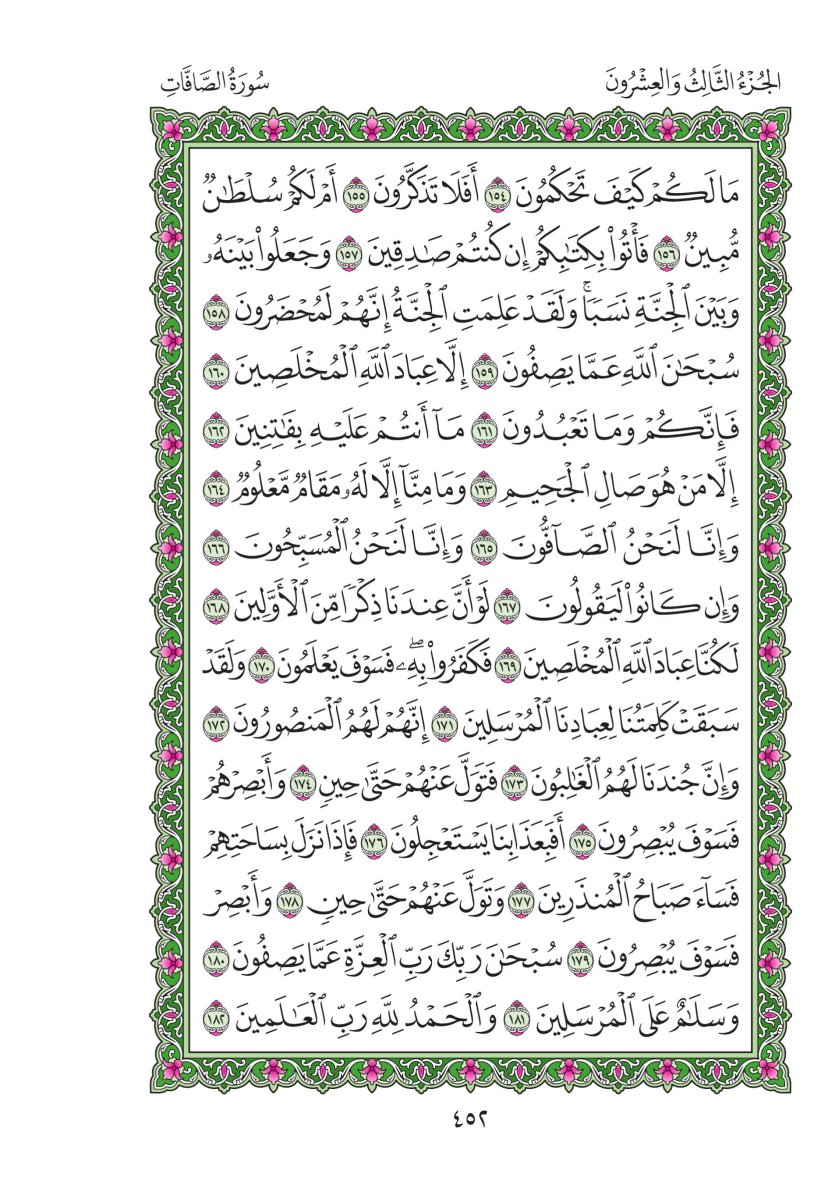 الجُزْءُ الثَّالِثُ وَالعِشْرُونَ
سُورَةُ الصَّافَّاتِ
مَا لَكُمْ كَيْفَ تَحْكُمُونَ ١٥٤ أَفَلَا تَذَكَّرُونَ ١٥٥ أَمْ لَكُمْ سُلْطَٰنٌ
مُّبِينٌ ١٥٦ فَأْتُوا۟ بِكِتَٰبِكُمْ إِن كُنتُمْ صَٰدِقِينَ ١٥٧ وَجَعَلُوا۟ بَيْنَهُۥ
وَبَيْنَ ٱلْجِنَّةِ نَسَبًاۚ وَلَقَدْ عَلِمَتِ ٱلْجِنَّةُ إِنَّهُمْ لَمُحْضَرُونَ ١٥٨
سُبْحَٰنَ ٱللَّهِ عَمَّا يَصِفُونَ ١٥٩ إِلَّا عِبَادَ ٱللَّهِ ٱلْمُخْلَصِينَ ١٦٠
فَإِنَّكُمْ وَمَا تَعْبُدُونَ ١٦١ مَآ أَنتُمْ عَلَيْهِ بِفَٰتِنِينَ ١٦٢
إِلَّا مَنْ هُوَ صَالِ ٱلْجَحِيمِ ١٦٣ وَمَا مِنَّآ إِلَّا لَهُۥ مَقَامٌ مَّعْلُومٌ ١٦٤
وَإِنَّا لَنَحْنُ ٱلصَّآفُّونَ ١٦٥ وَإِنَّا لَنَحْنُ ٱلْمُسَبِّحُونَ ١٦٦
وَإِن كَانُوا۟ لَيَقُولُونَ ١٦٧ لَوْ أَنَّ عِندَنَا ذِكْرًا مِّنَ ٱلْأَوَّلِينَ ١٦٨
لَكُنَّا عِبَادَ ٱللَّهِ ٱلْمُخْلَصِينَ ١٦٩ فَكَفَرُوا۟ بِهِۦۖ فَسَوْفَ يَعْلَمُونَ ١٧٠ وَلَقَدْ
سَبَقَتْ كَلِمَتُنَا لِعِبَادِنَا ٱلْمُرْسَلِينَ ١٧١ إِنَّهُمْ لَهُمُ ٱلْمَنصُورُونَ ١٧٢
وَإِنَّ جُندَنَا لَهُمُ ٱلْغَٰلِبُونَ ١٧٣ فَتَوَلَّ عَنْهُمْ حَتَّىٰ حِينٍ ١٧٤ وَأَبْصِرْهُمْ
فَسَوْفَ يُبْصِرُونَ ١٧٥ أَفَبِعَذَابِنَا يَسْتَعْجِلُونَ ١٧٦ فَإِذَا نَزَلَ بِسَاحَتِهِمْ
فَسَآءَ صَبَاحُ ٱلْمُنذَرِينَ ١٧٧ وَتَوَلَّ عَنْهُمْ حَتَّىٰ حِينٍ ١٧٨ وَأَبْصِرْ
فَسَوْفَ يُبْصِرُونَ ١٧٩ سُبْحَٰنَ رَبِّكَ رَبِّ ٱلْعِزَّةِ عَمَّا يَصِفُونَ ١٨٠
وَسَلَٰمٌ عَلَى ٱلْمُرْسَلِينَ ١٨١ وَٱلْحَمْدُ لِلَّهِ رَبِّ ٱلْعَٰلَمِينَ ١٨٢
٤٥٢